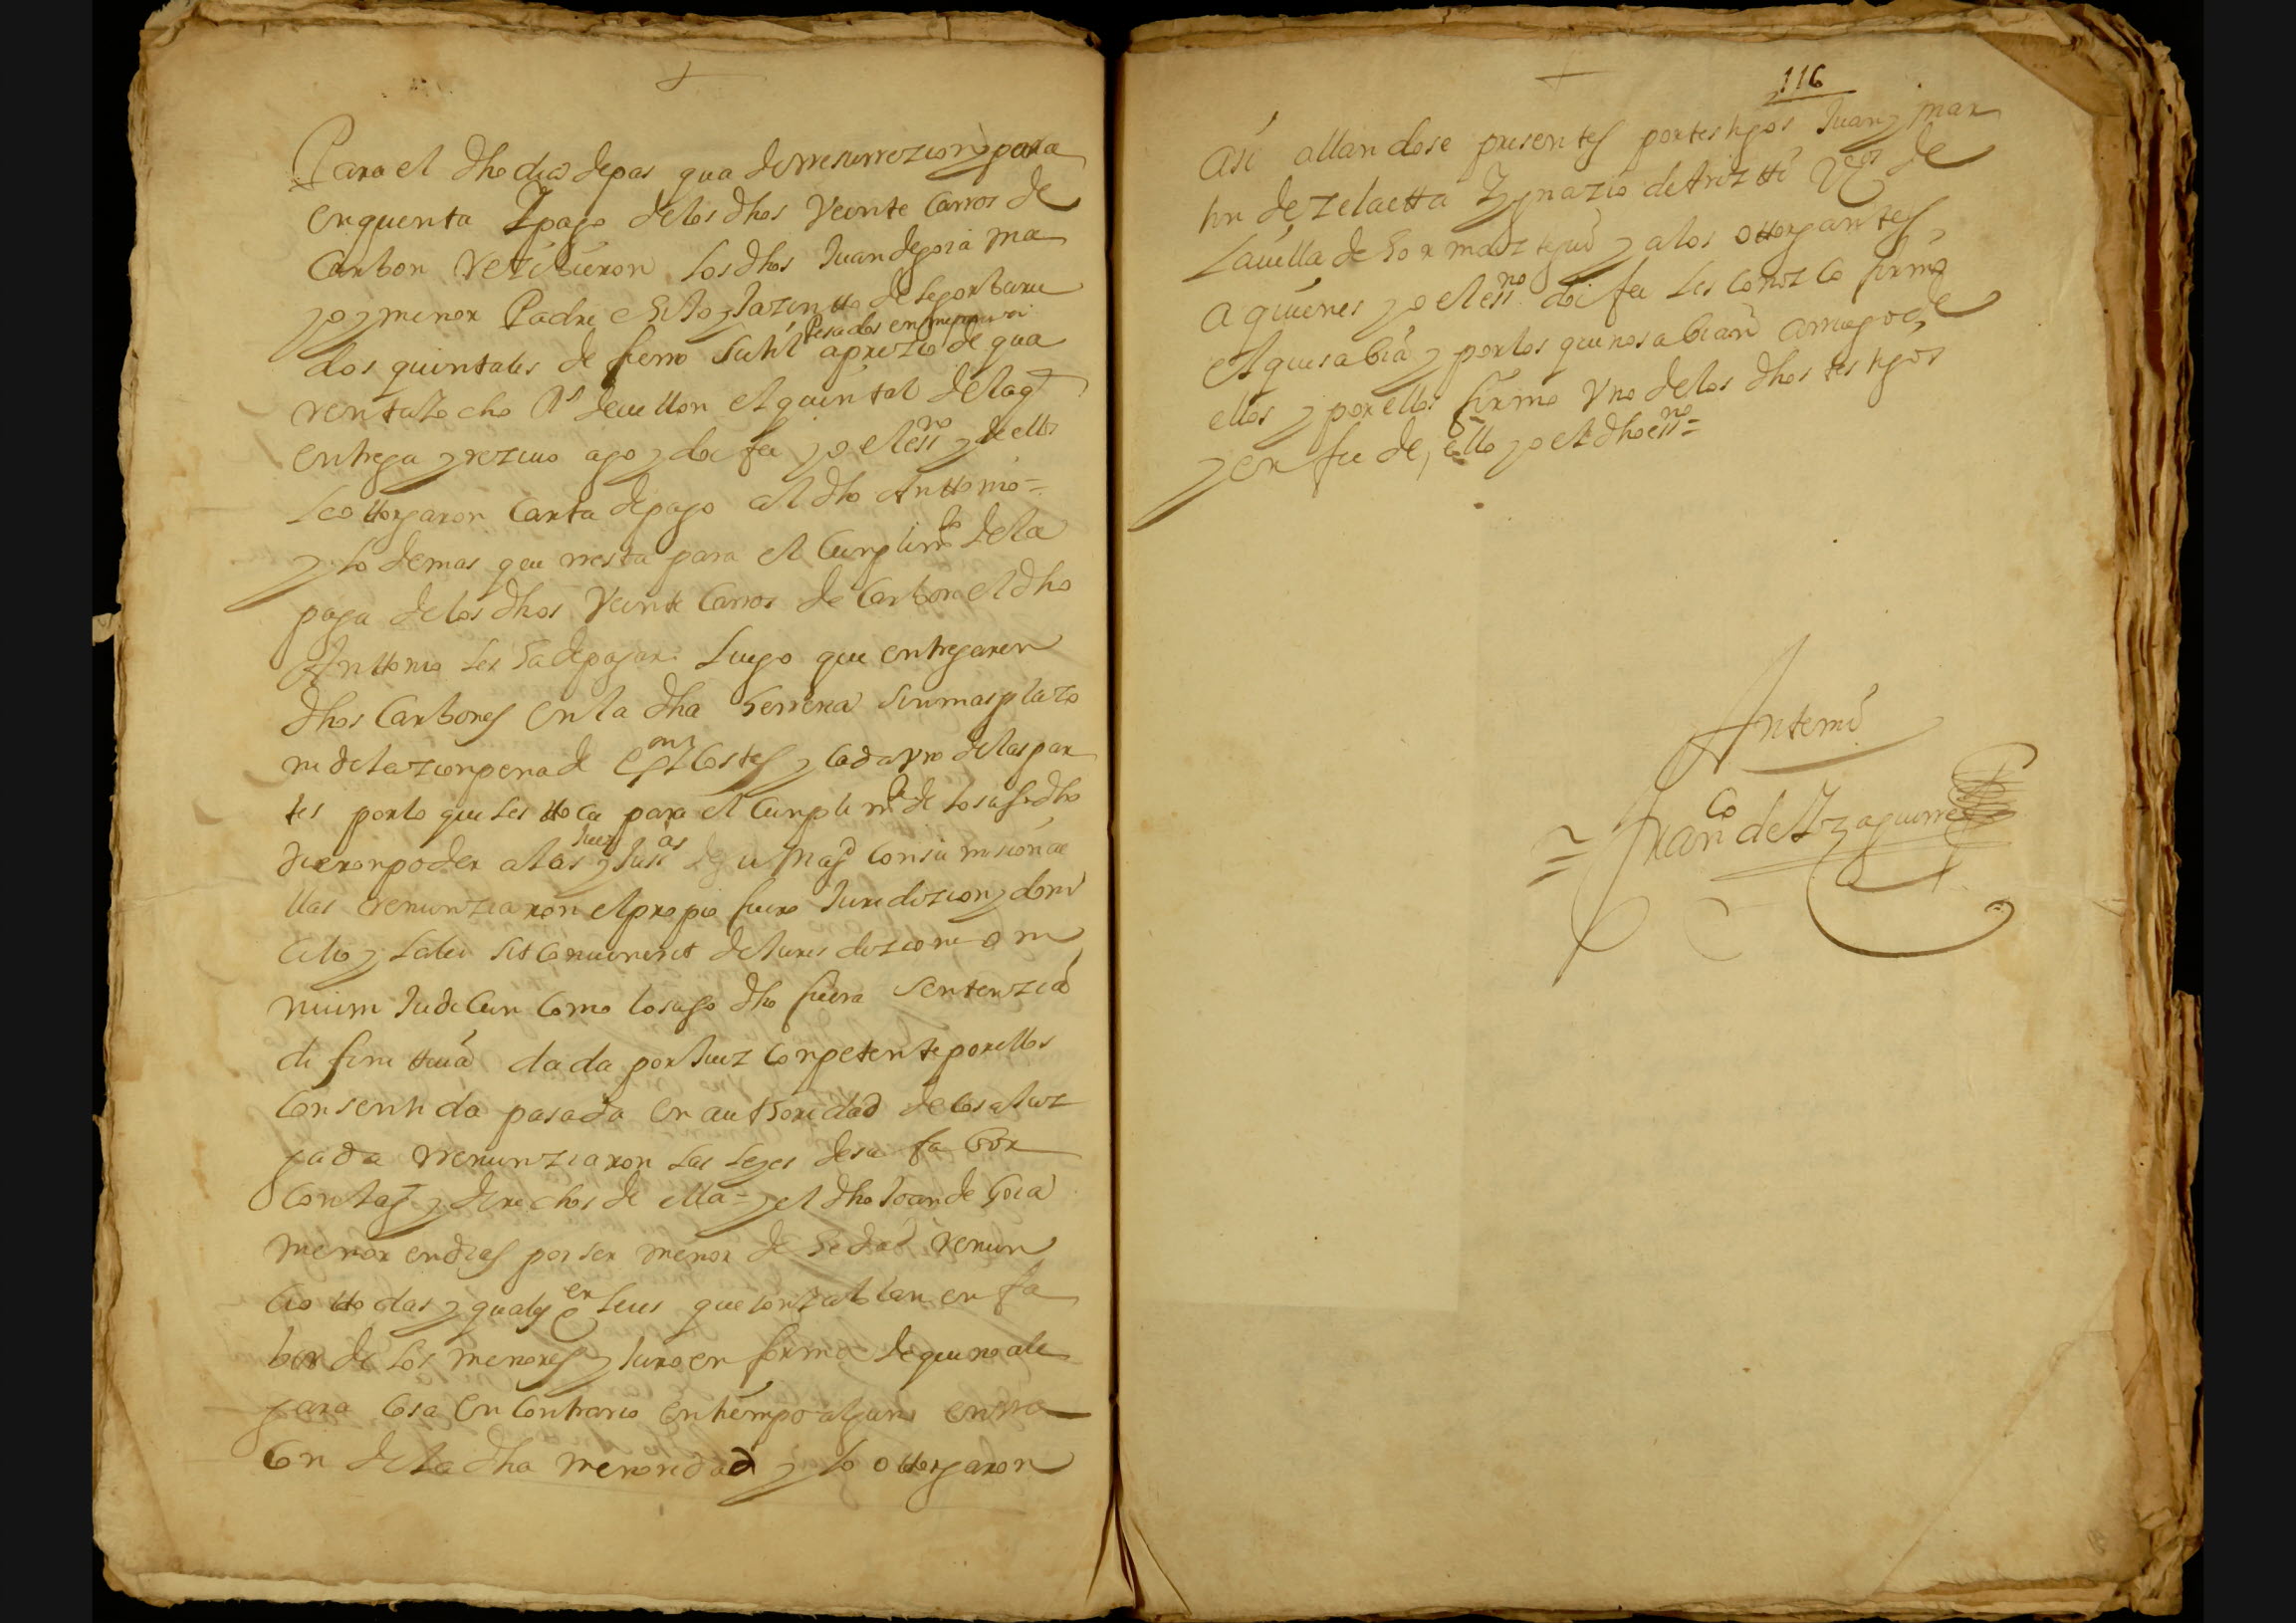 Para el dho dia de pasqua de rresurrezion y para
en quenta y pago de los dhos veinte carros de
carbon rezibieron los dhos Juan de goia ma
yor y menor Padre e hijo y Jazintto de legorburu
pesados en
dos quintales de fierro sutil a prezio de qua
renta y ocho Rs de vellon el quintal de la q
entrega y rezivo yo doi fee yo el essno y de ellos
le ottorgaron carta de pago al dho Anttonio =
y lo demas que rresta para el cunplimto de la
paga de los dhos veinte carros de carbon el dho
Anttonio les ha de pagar luego que entregaren
dhos carbones en la dha herreria sin mas plazo
ni delazion pena de exon y costas y cada uno de las par
tes por lo que les ttoca para el cunplimto de lo suso dho
dieron poder a las juezes y Justas de su Magd con sumision a e
llas renunziaron el propio fuero Juridizion y domi
cilio y la lei sit convenerit de Jurisdizione om
nium Judicun como lo suso dho fuera sentenzia
difinittiva dada por Juez conpetente por ellos
consentida pasada en authoridad de cosa Juz
gada rrenunziaron las leyes de su fabor
con la g y derechos de ella = y el dho Joan de Goia
menor en dias por ser menor de hedad renun
cio ttodas y qualesqer leies que son y ablan en fa
bor de los menores y Juro en forma de que no ale
gara cosa en contrario en tiempo alguno en rra
con de la dha menoridad y lo ottorgaron
116
asi allandose presentes por testigos Juan y mar
tin de zelaetta Ygnazio de Ariztti vezos de
la villa de hormaiztegui y a los ottorgantes
a quienes yo el essno doi fee les conozco firmo
el que sabia y por los que no sabian a rruego de
ellos y por ellos firmo uno de los dhos testigos
y en fee de ello yo el dho essno =
Antemi
= Franco de Yzaguirre